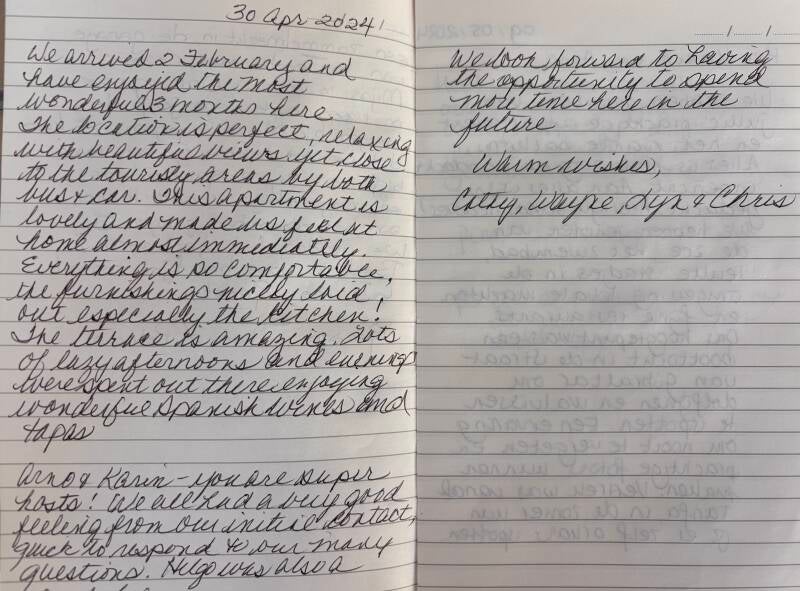 30 Apr 2024
We arrived 2 February and
have enjoyed the most
wonderful 3 months here
The location is perfect, relaxing
with beautiful views yet close
to the touristy areas by both
bus & car. This apartment is
lovely and made us feel at
home almost immediately.
Everything is so comfortable,
the furnishings nicely laid
out especially the kitchen!
The terrace is amazing. Lots
of lazy afternoons and evenings
were spent out there enjoying
wonderful Spanish wines and
tapas
Arno & Karin - you are super
hosts! We all had a very good
feeling from our initial contact,
quick to respond to our many
questions. Hugo was also a
We look forward to having
the opportunity to spend
more time here in the
future
Warm wishes,
Cathy, Wayne, Lyn & Chris